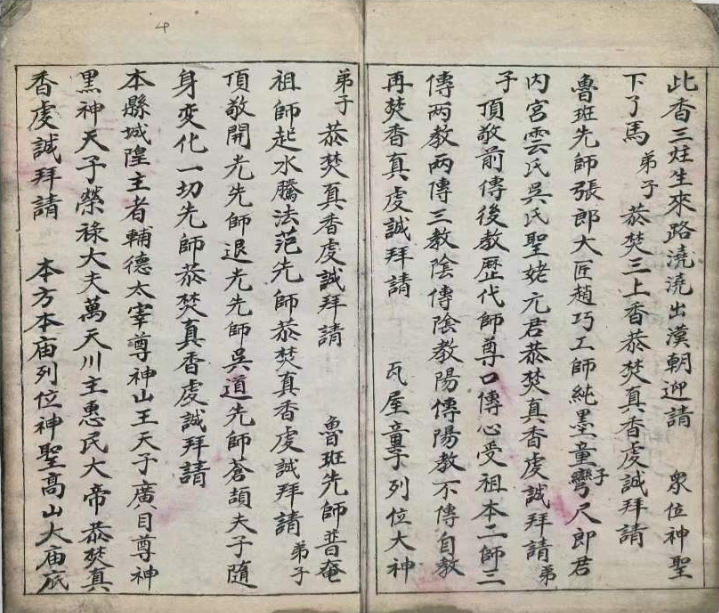 此香三炷生來路澆澆出漢朝迎請 衆位神聖
下了馬 弟子 恭焚三上香恭焚真香虔誠拜請
魯班先師張郎大匠趙巧工師純墨童子彎尺郎君
内宮雲氏吳氏聖姥元君恭焚真香虔誠拜請 弟
子 頂敬前傳後教歷代師尊口傳心受祖本二師三
傳两教两傳三教陰傳陰教陽傳陽教不傳自教
再焚香真虔誠拜請 瓦屋童子列位大神
弟子 恭焚真香虔誠拜請 魯班先師普庵
祖師起水騰法范先師恭焚真香虔誠拜請 弟子
頂敬開光先師退光先師吳道先師蒼頡夫子隨
身变化一切先師恭焚真香虔誠拜請
本縣城隍主者輔德太宰尊神山王天子廣目尊神
黑神天子榮祿大夫萬天川主惠民大帝恭焚真
香虔誠拜請 本方本庙列位神聖髙山大庙底